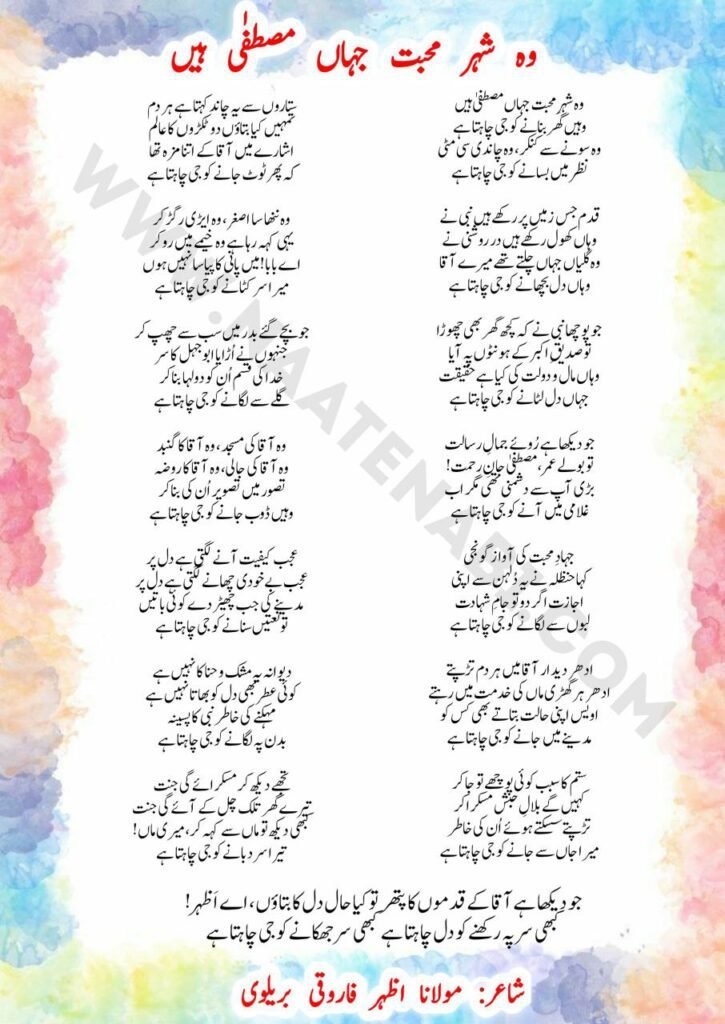 وہ شہر محبت جہاں مصطفیٰ ہیں
وہ شہر محبت جہاں مصطفیٰ ہیں
وہیں گھر بنانے کو جی چاہتا ہے
وہ سونے سے کنکر، وہ چاندی سی مٹی
نظر میں بسانے کو جی چاہتا ہے
قدم جس زمیں پر رکھے ہیں نبی نے
وہاں کھول رکھے ہیں در روشنی نے
وہ گلیاں جہاں چلتے تھے میرے آقا
وہاں دل بچھانے کو جی چاہتا ہے
جو پوچھا نبی نے کہ کچھ گھر بھی چھوڑا
تو صدیق اکبر کے ہونٹوں پہ آیا
وہاں مال و دولت کی کیا ہے حقیقت
جہاں دل لٹانے کو جی چاہتا ہے
جو دیکھا ہے رُوئے جمالِ رسالت
تو بولے عمر، مصطفیٰ جانِ رحمت!
بڑی آپ سے دشمنی تھی مگر اب
غلامی میں آنے کو جی چاہتا ہے
جہادِ محبت کی آواز گونجی
کہا حنظلہ نے یہ دُلہن سے اپنی
اجازت اگر دو تو جامِ شہادت
لبوں سے لگانے کو جی چاہتا ہے
ادھر دیدار آقا میں ہر دم تڑپتے
ادھر ہر گھڑی ماں کی خدمت میں رہتے
اویس اپنی حالت بتاتے بھی کس کو
مدینے میں جانے کو جی چاہتا ہے
ستم کا سبب کوئی پوچھے تو جا کر
کہیں گے بلالِ حبش مسکرا کر
تڑپتے سسکتے ہوئے اُن کی خاطر
میرا جاں سے جانے کو جی چاہتا ہے
ستاروں سے یہ چاند کہتا ہے ہر دم
تمہیں کیا بتاؤں دو ٹکڑوں کا عالم
اشارے میں آقا کے اتنا مزہ تھا
کہ پھر ٹوٹ جانے کو جی چاہتا ہے
وہ ننھا سا اصغر، وہ ایڑی رگڑ کر
یہی کہہ رہا ہے وہ خیمے میں رو کر
اے بابا! میں پانی کا پیاسا نہیں ہوں
میرا سر کٹانے کو جی چاہتا ہے
جو بچے گئے بدر میں سب سے چھپ کر
جنہوں نے اُڑایا ابو جہل کا سر
خدا کی قسم اُن کو دولہا بنا کر
گلے سے لگانے کو جی چاہتا ہے
وہ آقا کی مسجد، وہ آقا کا گنبد
وہ آقا کی جالی، وہ آقا کا روضہ
تصور میں تصویر اُن کی بنا کر
وہیں ڈوب جانے کو جی چاہتا ہے
عجب کیفیت آنے لگتی ہے دل پر
عجب بے خودی چھانے لگتی ہے دل پر
مدینے کی جب چھیڑ دے کوئی باتیں
تو نعتیں سنانے کو جی چاہتا ہے
دیوانہ یہ مشک و حنا کا نہیں ہے
کوئی عطر بھی دل کو بھاتا نہیں ہے
مہکنے کی خاطر نبی کا پسینہ
بدن پہ لگانے کو جی چاہتا ہے
تجھے دیکھ کر مسکرائے گی جنت
تیرے گھر تلک چل کے آئے گی جنت
کبھی دیکھ تو ماں سے کہہ کر، میری ماں!
تیرا سر دبانے کو جی چاہتا ہے
جو دیکھا ہے آقا کے قدموں کا پتھر تو کیا حال دل کا بتاؤں، اے اظہر!
کبھی سر پہ رکھنے کو دل چاہتا ہے کبھی سر جھکانے کو جی چاہتا ہے
شاعر: مولانا اظہر فاروقی بریلوی
WWW.NAATENABI.COM